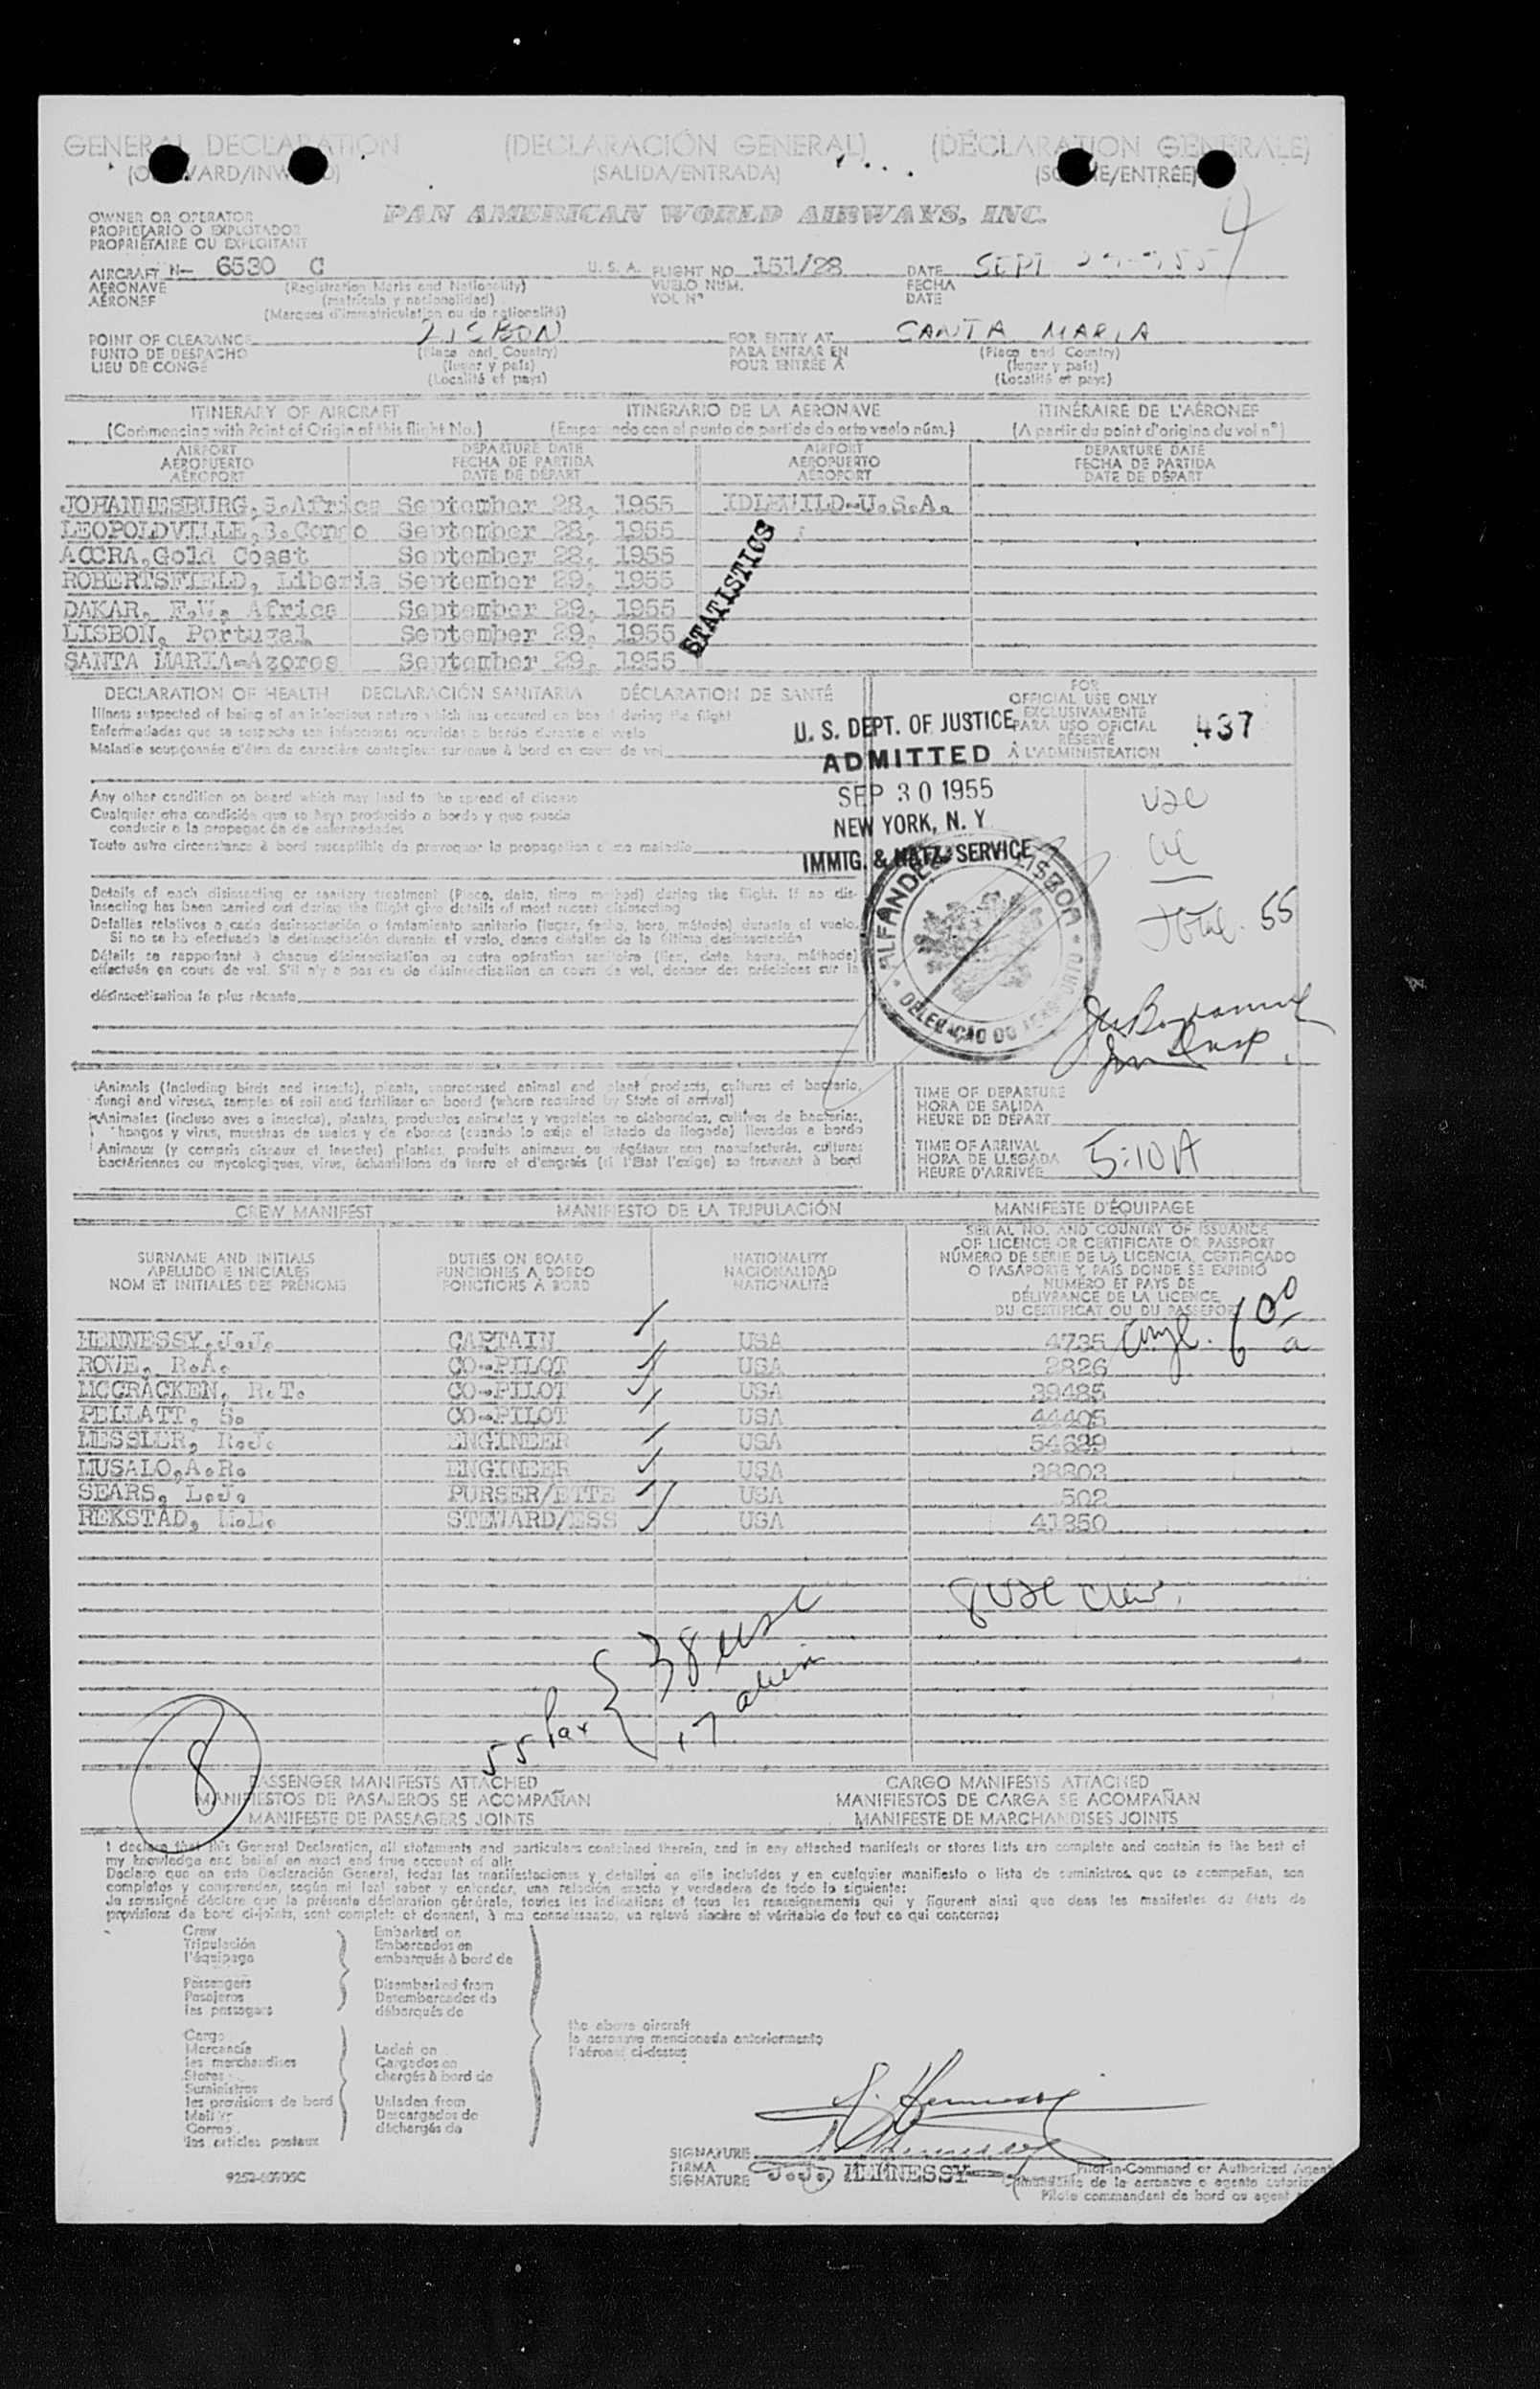 GENERAL DECLARATION (DECLARACIÓN GENERAL) (DÉCLARATION GENERALE)
(OUTWARD/INWARD) (SALIDA/ENTRADA) (SORTIE/ENTRÉE)
4
OWNER OR OPERATOR PAN AMERICAN WORLD AIRWAYS, INC.
PROPIETARIO O EXPLOTADOR
PROPRIÉTAIRE OU EXPLOITANT
AIRCRAFT N- 6530 C U. S. A. FLIGHT NO 151/28 DATE SEPT
AERONAVE (Registration Marks and Nationality) VUELO NUM. FECHA
AÉRONEF (matrícula y nacionalidad) VOL Nº DATE
(Marques d'immatriculation ou de nationalité)
POINT OF CLEARANCE LISBON FOR ENTRY AT SANTA MARIA
PUNTO DE DESPACHO (Place and Country) PARA ENTRAR EN (Place and Country)
LIEU DE CONGÉ (lugar y país) POUR ENTRÉE A (lugar y país)
(Localité et pays) (Localité et pays)
ITINERARY OF AIRCRAFT ITINERARIO DE LA AERONAVE ITINÉRAIRE DE L'AÉRONEF
(Commencing with Point of Origin of this flight No.) (Empezando con el punto de partida de este vuelo núm.) (A partir du point d'origine du vol nº)
AIRPORT DEPARTURE DATE AIRPORT DEPARTURE DATE
AEROPUERTO FECHA DE PARTIDA AEROPUERTO FECHA DE PARTIDA
AÉROPORT DATE DE DÉPART AÉROPORT DATE DE DÉPART
JOHANNESBURG, S.Africa September 28, 1955 IDLEWILD-U.S.A.
LEOPOLDVILLE, B.Congo September 28, 1955
ACCRA, Gold Coast September 28, 1955
ROBERTSFIELD, Liberia September 29, 1955
DAKAR, F.W. Africa September 29, 1955
LISBON, Portugal September 29, 1955
SANTA MARIA-Azores September 29, 1955
STATISTICS
DECLARATION OF HEALTH DECLARACIÓN SANITARIA DÉCLARATION DE SANTÉ
Illness suspected of being of an infectious nature which has occured on board during the flight
Enfermedades que se sospecha son infecciosas ocurridas a bordo durante el vuelo
Maladie soupçonnée d'être de caractère contagieux survenue à bord en cours de vol
FOR
OFFICIAL USE ONLY
EXCLUSIVAMENTE
PARA USO OFICIAL
RESERVÉ
A L'ADMINISTRATION
437
U. S. DEPT. OF JUSTICE
ADMITTED
SEP 30 1955
NEW YORK, N. Y
IMMIG. & NATZ. SERVICE
Any other condition on board which may lead to the spread of disease
Cualquier otra condición que se haya producido a bordo y que pueda
conducir a la propagación de enfermedades
Toute autre circonstance à bord susceptible de provoquer la propagation d'une maladie
USC
Total. 55
ALFANDEGA LISBOA
DELEGAÇÃO DO AEROPORTO
Details of each disinsecting or sanitary treatment (Place, date, time method) during the flight. If no dis-
insecting has been carried out during the flight give details of most recent disinsecting
Detalles relativos a cada desinsectación o tratamiento sanitario (lugar, fecha, hora, método) durante el vuelo.
Si no se ha efectuado la desinsectación durante el vuelo, dense detalles de la última desinsectación
Détails se rapportant à chaque désinsectisation ou autre opération sanitaire (lieu, date, heure, méthode)
effectuée en cours de vol. S'il n'y a pas eu de désinsectisation en cours de vol, donner des précisions sur la
désinsectisation la plus récente
Animals (including birds and insects), plants, unprocessed animal and plant products, cultures of bacteria,
fungi and viruses, samples of soil and fertilizer on board (where required by State of arrival)
Animales (incluso aves e insectos), plantas, productos animales y vegetales no elaborados, cultivos de bacterias,
hongos y virus, muestras de suelos y de abonos (cuando lo exija el Estado de llegada) llevados a bordo
Animaux (y compris oiseaux et insectes) plantes, produits animaux ou végétaux non manufacturés, cultures
bactériennes ou mycologiques, virus, échantillons de terre et d'engrais (si l'Etat l'exige) se trouvant à bord
TIME OF DEPARTURE
HORA DE SALIDA
HEURE DE DÉPART
TIME OF ARRIVAL
HORA DE LLEGADA
HEURE D'ARRIVÉE
5:10 A
CREW MANIFEST MANIFIESTO DE LA TRIPULACIÓN MANIFESTE D'ÉQUIPAGE
SURNAME AND INITIALS DUTIES ON BOARD NATIONALITY
APELLIDO E INICIALES FUNCIONES A BORDO NACIONALIDAD
NOM ET INITIALES DES PRÉNOMS FONCTIONS A BORD NATIONALITÉ
SERIAL NO. AND COUNTRY OF ISSUANCE
OF LICENCE OR CERTIFICATE OR PASSPORT
NÚMERO DE SERIE DE LA LICENCIA, CERTIFICADO
O PASAPORTE Y PAÍS DONDE SE EXPIDIÓ
NUMÉRO ET PAYS DE
DÉLIVRANCE DE LA LICENCE
DU CERTIFICAT OU DU PASSEPORT
HENNESSY, J.J. CAPTAIN USA 4735
ROWE, R.A. CO-PILOT USA 2826
MCCRACKEN, R.T. CO-PILOT USA 39485
PELLATT, S. CO-PILOT USA 44405
MESSLER, R.J. ENGINEER USA 54629
MUSALO, A.R. ENGINEER USA 38803
SEARS, L.J. PURSER/ETTE USA 502
REKSTAD, STEWARD/ESS USA 41350
8 USC Crew.
55 Pax { 38 USC
17 alien
8
PASSENGER MANIFESTS ATTACHED CARGO MANIFESTS ATTACHED
MANIFIESTOS DE PASAJEROS SE ACOMPAÑAN MANIFIESTOS DE CARGA SE ACOMPAÑAN
MANIFESTE DE PASSAGERS JOINTS MANIFESTE DE MARCHANDISES JOINTS
I declare that this General Declaration, all statements and particulars contained therein, and in any attached manifests or stores lists are complete and contain to the best of
my knowledge and belief an exact and true account of all:
Declaro que en esta Declaración General, todas las manifestaciones y detalles en ella incluídos y en cualquier manifiesto o lista de suministros que se acompañan, son
completos y comprenden, según mi leal saber y entender, una relación exacta y verdadera de todo lo siguiente:
Je soussigné déclare que la présente déclaration générale, toutes les indications et tous les renseignements qui y figurent ainsi que dans les manifestes du états de
provisions de bord ci-joints, sont complets et donnent, à ma connaissance, un relevé sincère et véritable de tout ce qui concerne:
Crew Embarked on
Tripulación Embarcados en
l'équipage embarqués à bord de
Passengers Disembarked from
Pasajeros Desembarcados de
les passagers débarqués de
the above aircraft
la aeronave mencionada anteriormente
l'aéronef ci-dessus
Cargo
Mercancía Laden on
les marchandises Cargados en
Stores chargés à bord de
Suministros
les provisions de bord Unladen from
Mail Descargados de
Correo déchargés de
les articles postaux
J. Hennessy
SIGNATURE
FIRMA
SIGNATURE J.J. HENNESSY
Pilot-in-Command or Authorized Agent
Comandante de la aeronave o agente
Pilote commandant de bord ou agent